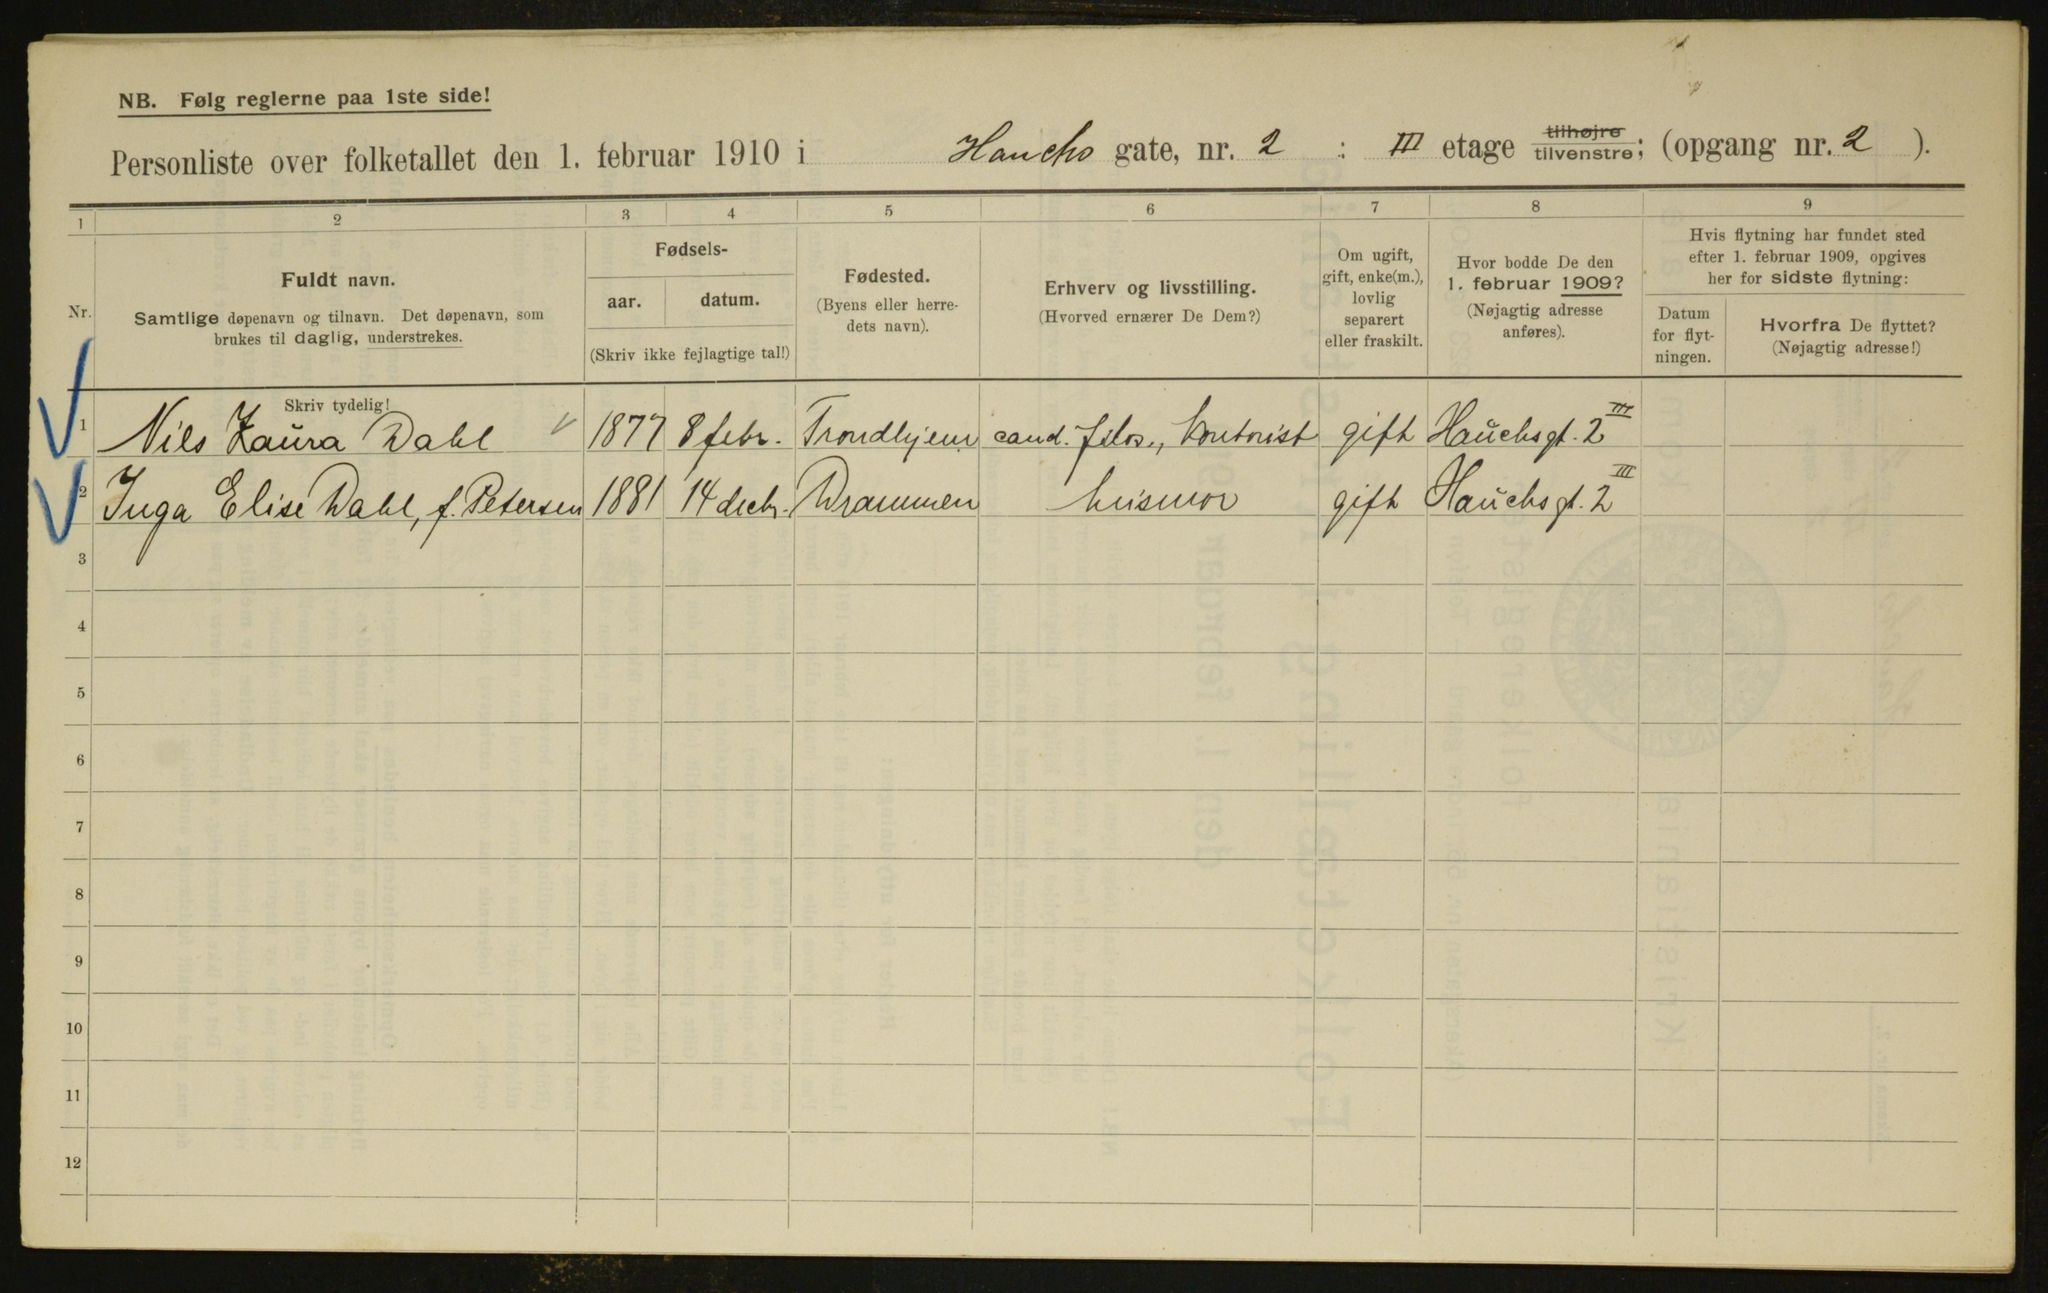 NB. Følg reglerne paa 1ste side!
Personliste over folketallet den 1. februar 1910 i Hauchs gate, nr. 2 : III etage tilhøjre tilvenstre; (opgang nr. 2 ).
1 2 3 4 5 6 7 8 9
Nr.
Fuldt navn.
Samtlige døpenavn og tilnavn. Det døpenavn, som
brukes til daglig, understrekes.
Fødsels-
aar. datum.
(Skriv ikke fejlagtige tal!)
Fødested.
(Byens eller herre-
dets navn).
Erhverv og livsstilling.
(Hvorved ernærer De Dem?)
Om ugift,
gift, enke(m.),
lovlig
separert
eller fraskilt.
Hvor bodde De den
1. februar 1909?
(Nøjagtig adresse
anføres).
Hvis flytning har fundet sted
efter 1. februar 1909, opgives
her for sidste flytning:
Datum
for flyt-
ningen.
Hvorfra De flyttet?
(Nøjagtig adresse!)
Skriv tydelig!
1 Nils Laura Dahl 1877 8 febr. Trondhjem cand. filos., kontorist gift Hauchsgt. 2 III
2 Inga Elise Dahl, f. Petersen 1881 14 decbr. Drammen husmor gift Hauchsgt. 2 III
3
4
5
6
7
8
9
10
11
12